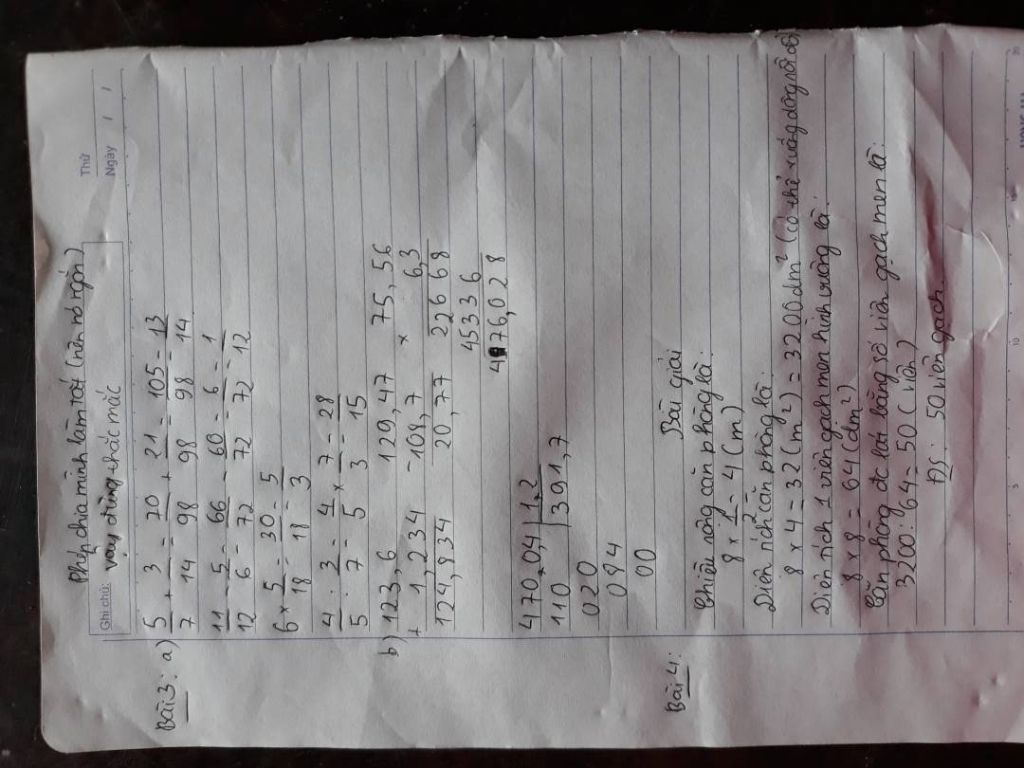 Phép chia mình làm tắt (nên nó ngắn)
Thứ
Ngày / /
Ghi chú: vay đừng thắc mắc
Bài 3: a) 5/7 + 3/14 = 70/98 + 21/98 = 105/98 = 13/14
11/12 - 5/6 = 66/72 - 60/72 = 6/72 = 1/12
6 × 5/18 = 30/18 = 5/3
4/5 : 3/7 = 4/5 × 7/3 = 28/15
b) 123,6 129,47 75,56
+ 1,234 -108,7 × 6,3
124,834 20,77 22668
45336
476,028
470,04 1,2
110 391,7
020
084
00
Bài 4: Bài giải
Chiều rộng căn phòng là:
8 × 1/2 = 4 (m)
Diện tích căn phòng là:
8 × 4 = 32 (m²) = 3200 dm² (có thể xuống dòng rồi đổi)
Diện tích 1 viên gạch men hình vuông là:
8 × 8 = 64 (dm²)
Căn phòng đc lát bằng số viên gạch men là:
3200 : 64 = 50 (viên)
ĐS: 50 viên gạch